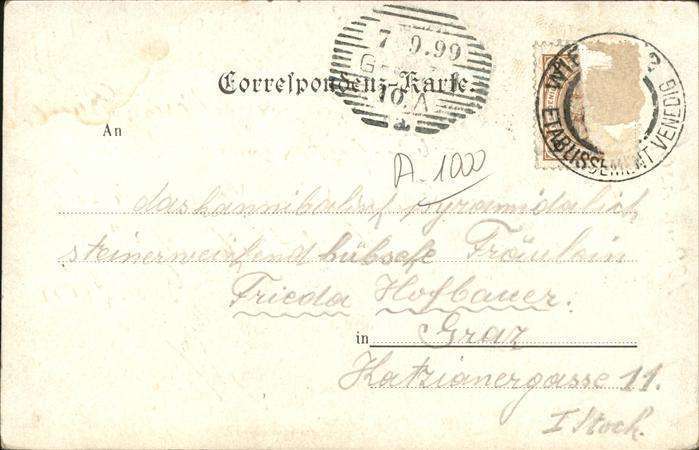 7 9.99
Correspondenz-Karte.
10.A
ETABLISSEMENT VENEDIG
An
A-1000
das kannibalisch pyramidalisch
steinerweichend hübsche Fräulein
Frieda Hofbauer.
in Graz
Katzianergasse 11.
I Stock.